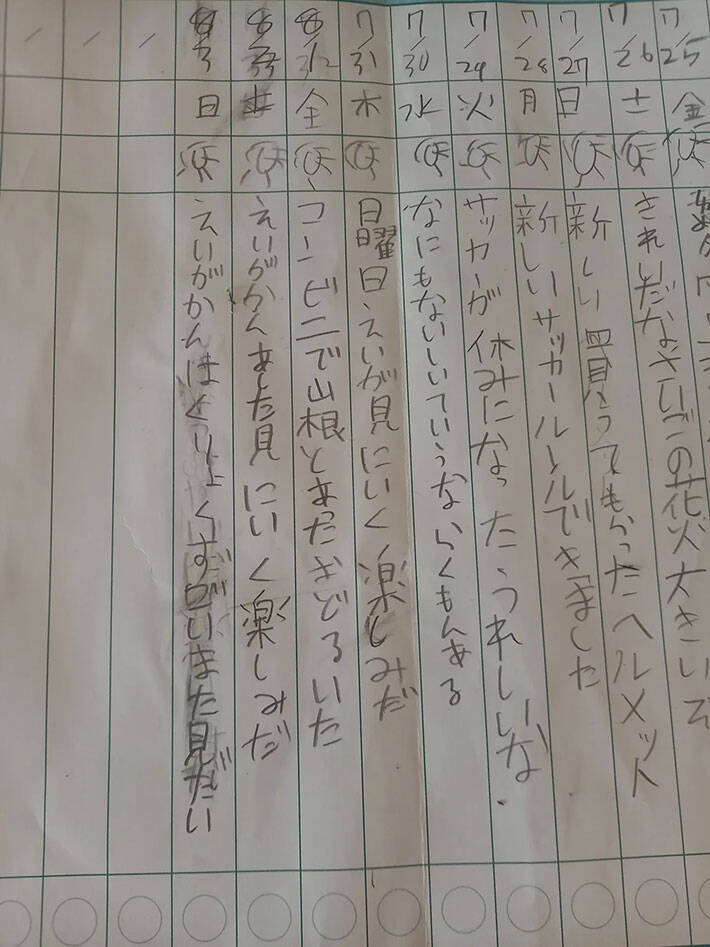 7/25 金
7/26 土
きれいだなさいごの花火大きいぞ
7/27 日
新しい買ってもらったヘルメット
7/28 月
新しいサッカールールできました
7/29 火
サッカーが休みになったうれしいな.
7/30 水
なにもないしいていうならくもんある
7/31 木
日曜日えいが見にいく楽しみだ
金
コンビニで山根とあったおどろいた
えいがかんあした見にいく楽しみだ
8/3 日
えいがかんはくりょくすごいまた見たい